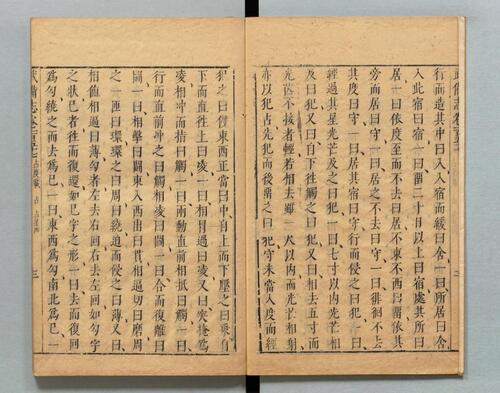 行而造其中曰入入宿而緩曰舍一曰所居曰舍
入此宿曰宿一曰留二十日以上曰宿處其所曰
居一曰依度至而不去曰居不東不西曰留依其
旁而居曰守一曰居之不去曰守一曰徘徊不去
其度曰守一曰居其宿曰守行而侵之曰犯一曰
經過其星光芒及之曰犯一曰七寸以内光芒相
及曰犯又曰自下往觸之曰犯又曰相去五寸而
光芒不接者輕若相去雖一尺以内而光芒相射
亦以犯占先犯而後留之曰犯守未當入度而經
犯之曰侵東西正當曰中自上而下壓之曰乘自
下而直往上曰凌一曰相冒過曰凌又曰突掩爲
凌相冲而指曰觸一曰兩動直前相抵曰觸一曰
行而直前冲之曰觸相凌曰鬭一曰合而復離曰
鬭一曰相擊曰鬭東入西出曰貫相過切曰磨周
之一匝曰環環之曰周曰繞追而侵之曰薄又曰
相偪相過曰薄勾者左去右回右去左回如勾字
之狀巳者往而復還如巳字之形一曰去而復回
爲勾繞之而去爲巳一曰東西爲勾南北爲巳一
武備志卷一百五十 占度載 占 三